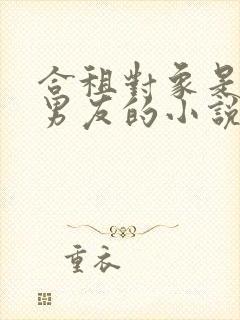 合租對象是
男友的小說
重衣